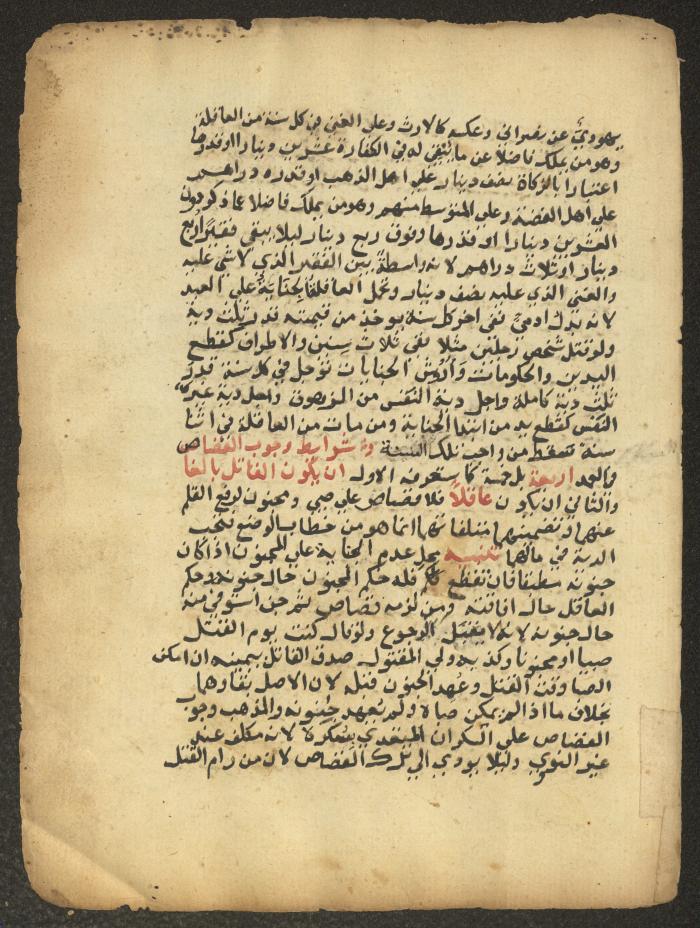 يهودي عن نصراني وعكسه كالارث وعلى الغني في كل سنة من العاقلة
وهو من يملك فاضلا عن ما يبقى له في الكفارة عشرين دينارا او قدرها
اعتبارا بالزكاة نصف دينار على اهل الذهب او قدره دراهم
على اهل الفضة وعلى المتوسط منهم وهو من يملك فاضلا عما ذكر دون
العشرين دينارا او قدرها وفوق ربع دينار ليلا يبقى فقيرا ربع
دينار او ثلاث دراهم لانه واسطة بين الفقير الذي لا شي عليه
والغني الذي عليه نصف دينار وتحمل العاقلة الجناية على العبد
لانه بدل ادمي ففي اخر كل سنة يوخذ من قيمته قدر ثلث دية
ولو قتل شخص رجلين مثلا ففي ثلاث سنين والاطراف كقطع
اليدين والحكومات وأروش الجنايات تؤجل في كل سنة قدر
ثلث دية كاملة واجل دية النفس من الزهوق واجل دية غير
النفس كقطع يد من ابتدا الجناية ومن مات من العاقلة في اثنا
سنة سقط من واجب تلك السنة وشرايط وجوب القصاص
في العمد اربعة بل خمسة كما ستعرفه الاول ان يكون القاتل بالغا
والثاني ان يكون عاقلا فلا قصاص على صبي ومجنون لرفع القلم
عنهما وتضمينهما متلفاتهما انما هو من خطاب الوضع فتجب
الدية في مالهما تنبيه محل عدم الجناية على المجنون اذا كان
جنونه مطبقا فان تقطع فله حكم المجنون حال جنونه وحكم
العاقل حال افاقته ومن لزمه قصاص ثم جن استوفي منه
حال جنونه لانه لا يقبل الرجوع ولو قال كنت يوم القتل
صبيا او مجنونا وكذبه ولي المقتول صدق القاتل بيمينه ان امكن
الصبا وقت القتل وعهد الجنون قبله لان الاصل بقاوهما
بخلاف ما اذا لم يمكن صباه ولم يعهد جنونه والمذهب وجوب
القصاص على السكران المتعدي بسكره لانه مكلف عند
غير النووي وليلا يودي الى ترك القصاص لان من رام القتل